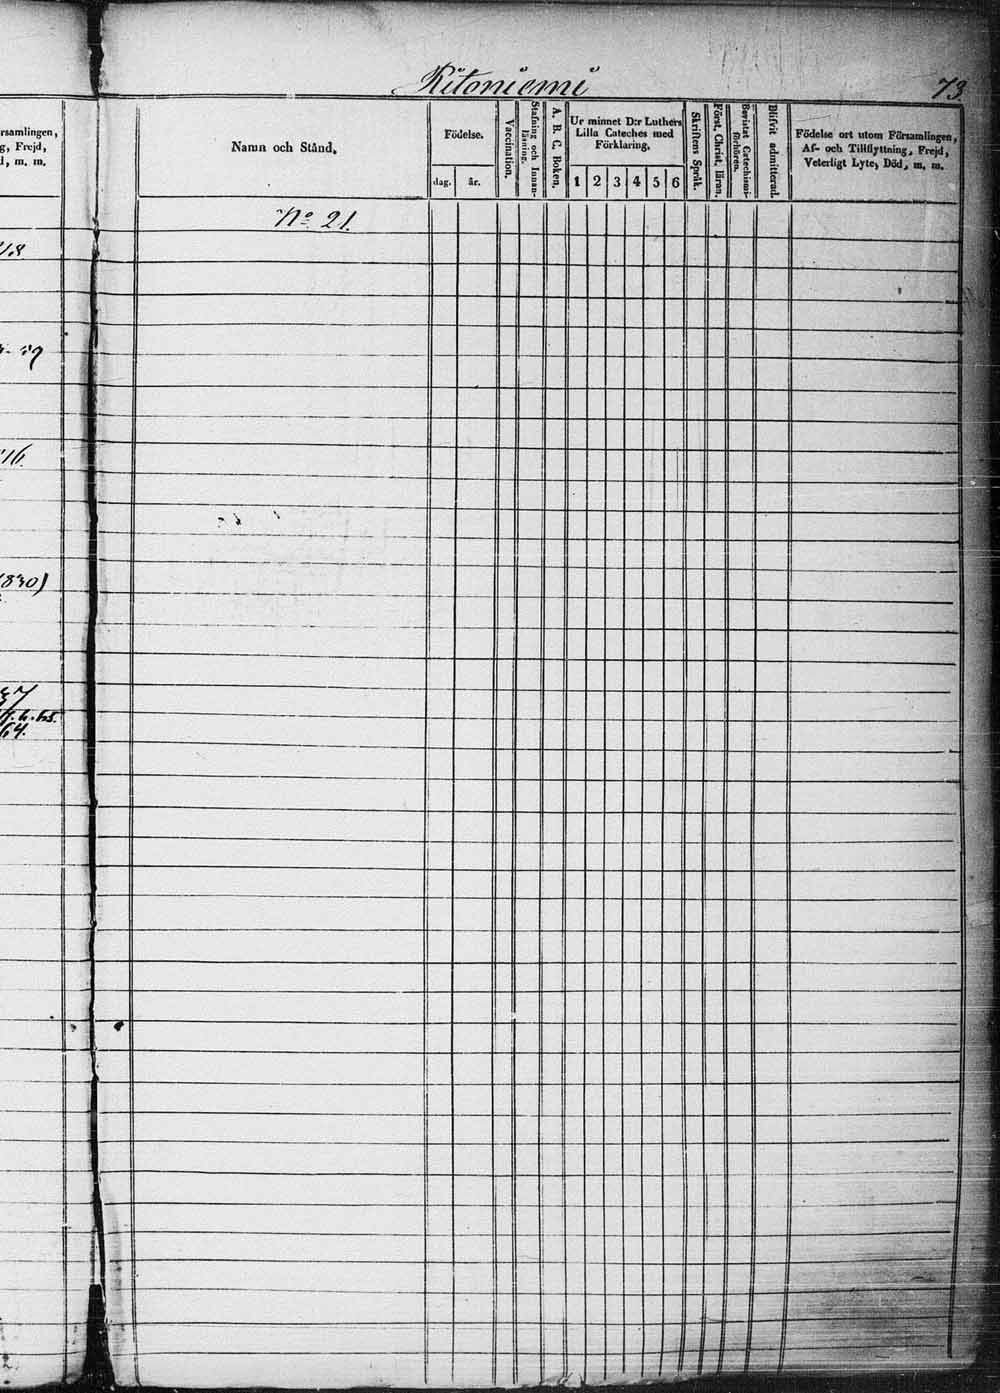 Ritoniemi
73.
rsamlingen,
g, Frejd,
d, m. m.
Namn och Stånd.
Födelse.
dag. år.
Vaccination.
Stafning och Innan-
läsning.
A. B. C. Boken.
Ur minnet D:r Luthers
Lilla Cateches med
Förklaring.
1 2 3 4 5 6
Skriftens Språk.
Först. Christ. läran.
Bevistat Catechismi-
förhören.
Blifvit admitterad.
Födelse ort utom Församlingen,
Af- och Tillflyttning, Frejd,
Veterligt Lyte, Död, m. m.
No 21.
18
29
16
830)
37
64.